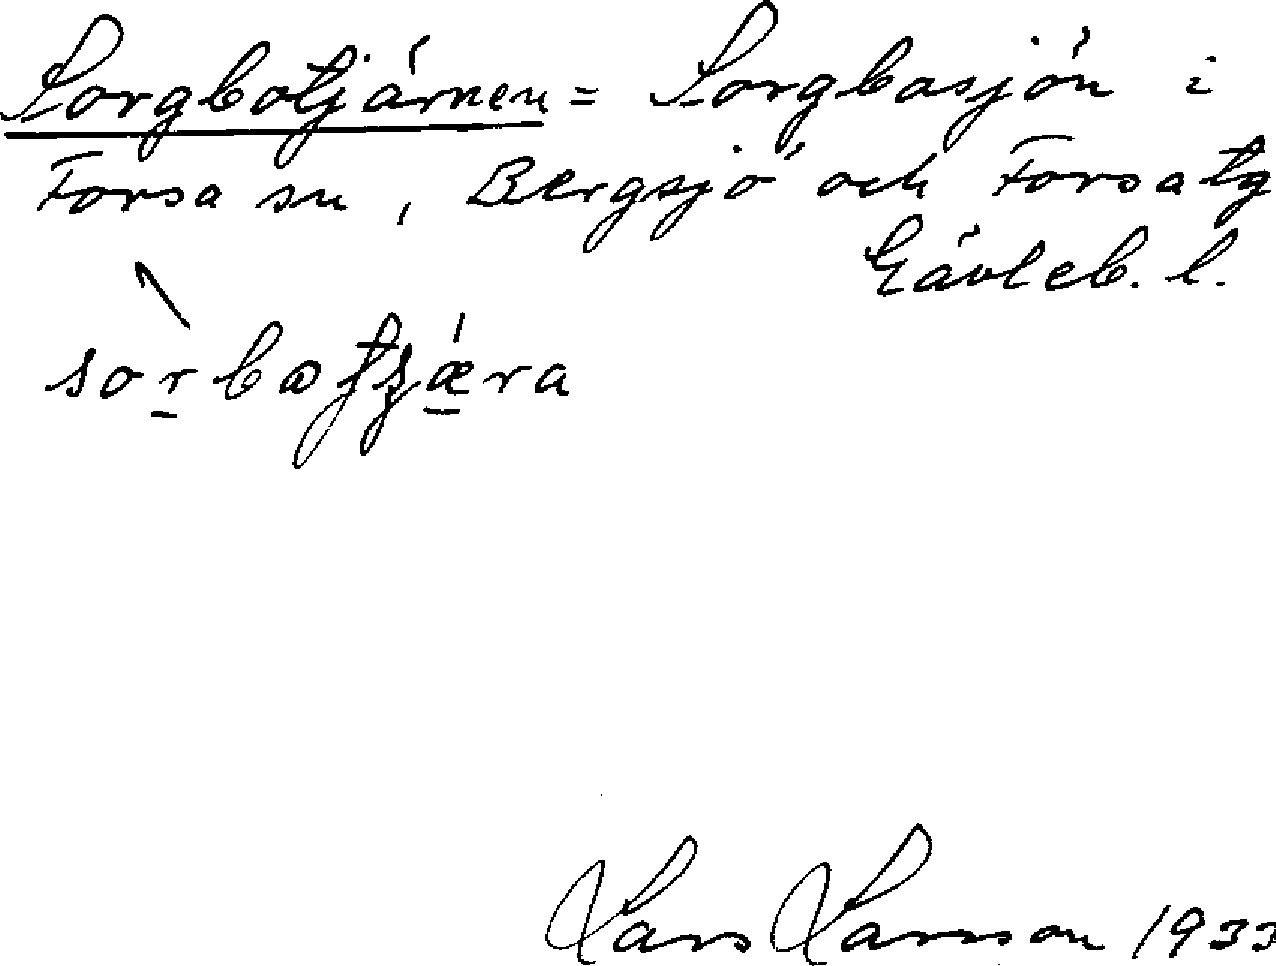 Sorgbotjärnen = Sorgbosjön i
Forsa sn, Bergsjö och Forsa tg
Gävleb. l.
Lars Larsson 1933